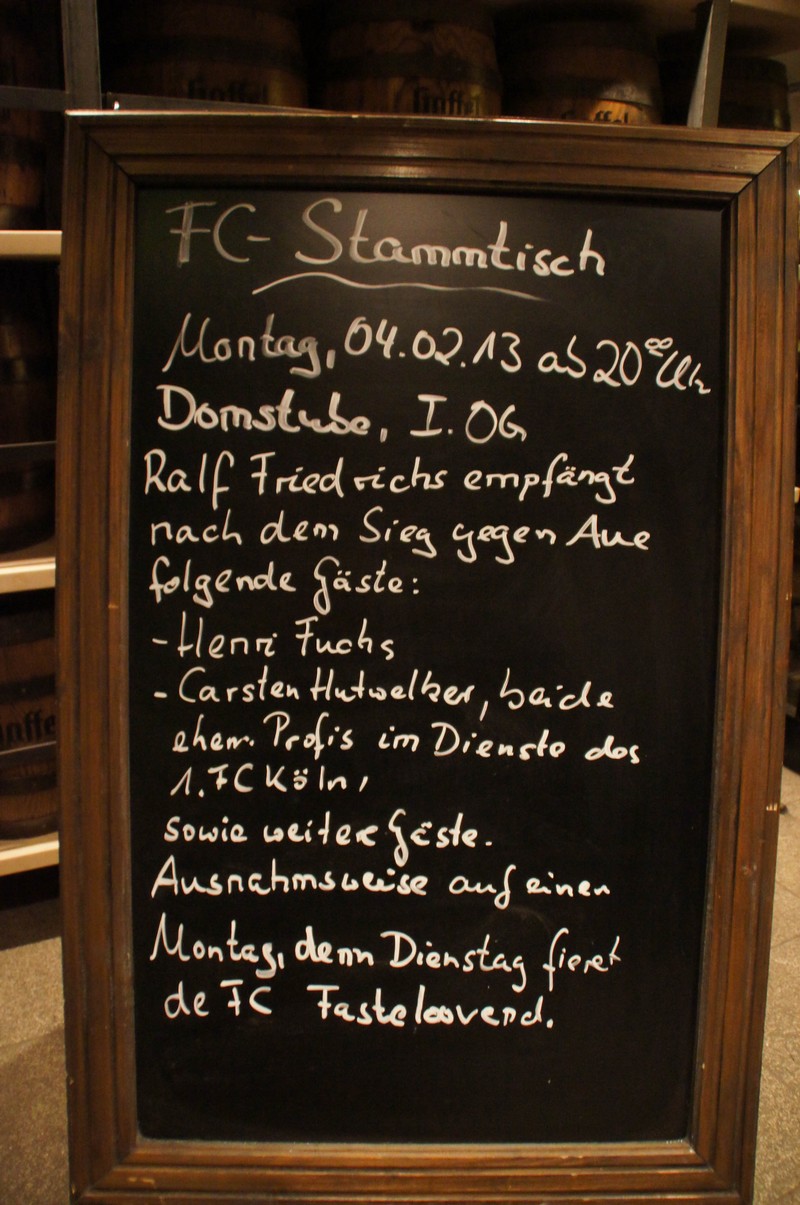 Gaffel
Gaffel
Gaffel
FC- Stammtisch
Montag, 04.02.13 ab 20⁰⁰ Uhr
Domstube, I. OG
Ralf Friedrichs empfängt
nach dem Sieg gegen Aue
folgende Gäste:
- Henri Fuchs
- Carsten Hutwelker, beide
ehem. Profis im Dienste des
1. FC Köln,
sowie weitere Gäste.
Ausnahmsweise auf einen
Montag, denn Dienstag fieret
de FC Fastelovend.
Gaffel